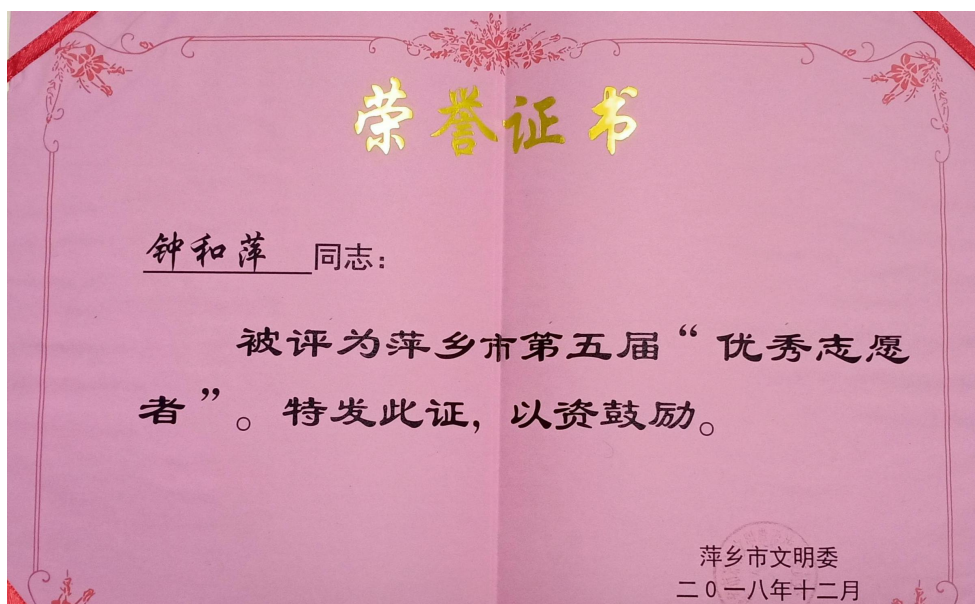 荣誉证书
钟和萍 同志：
被评为萍乡市第五届“优秀志愿
者”。特发此证，以资鼓励。
萍乡市文明委
二0一八年十二月